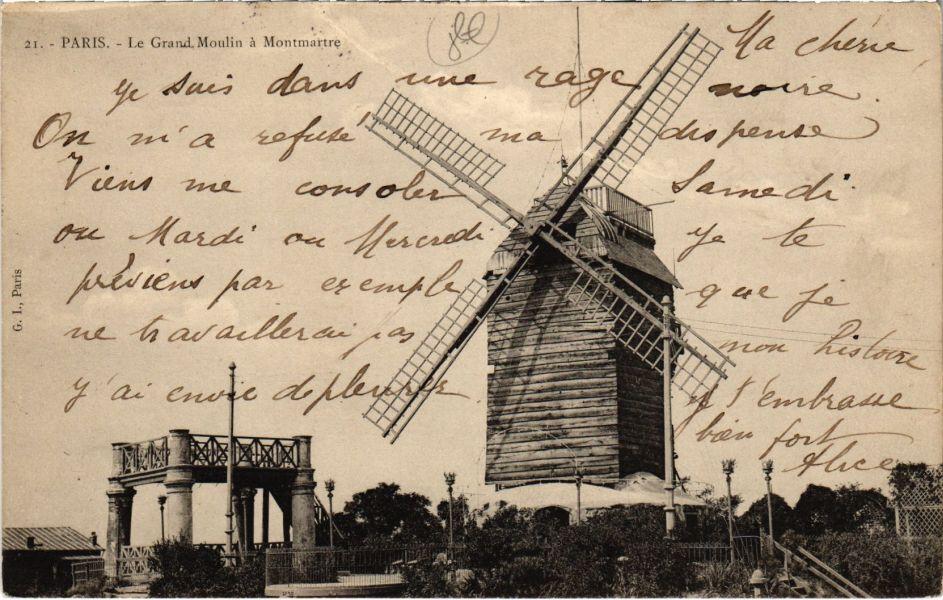 21. - PARIS. - Le Grand Moulin à Montmartre
Ma chérie
je suis dans une rage noire.
On m'a refusé ma dispense
Viens me consoler Samedi.
ou Mardi ou Mercredi je te
préviens par exemple que je
ne travaillerai pas mon histoire
j'ai envie de pleurer
je t'embrasse
bien fort
Alice
G. I., Paris